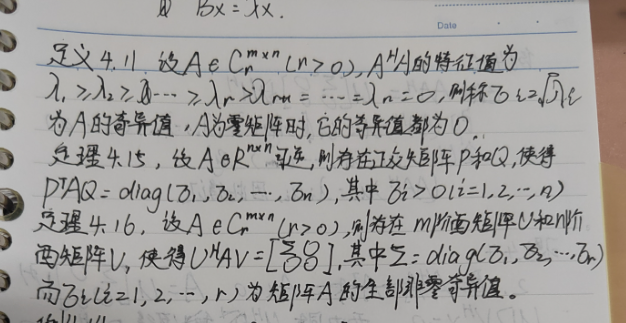 Bx=λx.
Date
定义4.11 设A∈C_r^{m×n}(r>0), A^HA的特征值为
λ₁≥λ₂≥…≥λr>λr+1=…=λn=0, 则称σi=√λi
为A的奇异值,A为零矩阵时,它的奇异值都为0.
定理4.15, 设A∈R^{n×n}可逆,则存在正交矩阵P和Q,使得
P^TAQ=diag(σ₁,σ₂,…,σn),其中σi>0(i=1,2,…,n)
定理4.16, 设A∈C_r^{m×n}(r>0),则存在m阶酉矩阵U和n阶
酉矩阵V, 使得U^HAV=[Σ 0 0 0],其中Σ=diag(σ₁,σ₂,…,σr)
而σi(i=1,2,…,r)为矩阵A的全部非零奇异值。